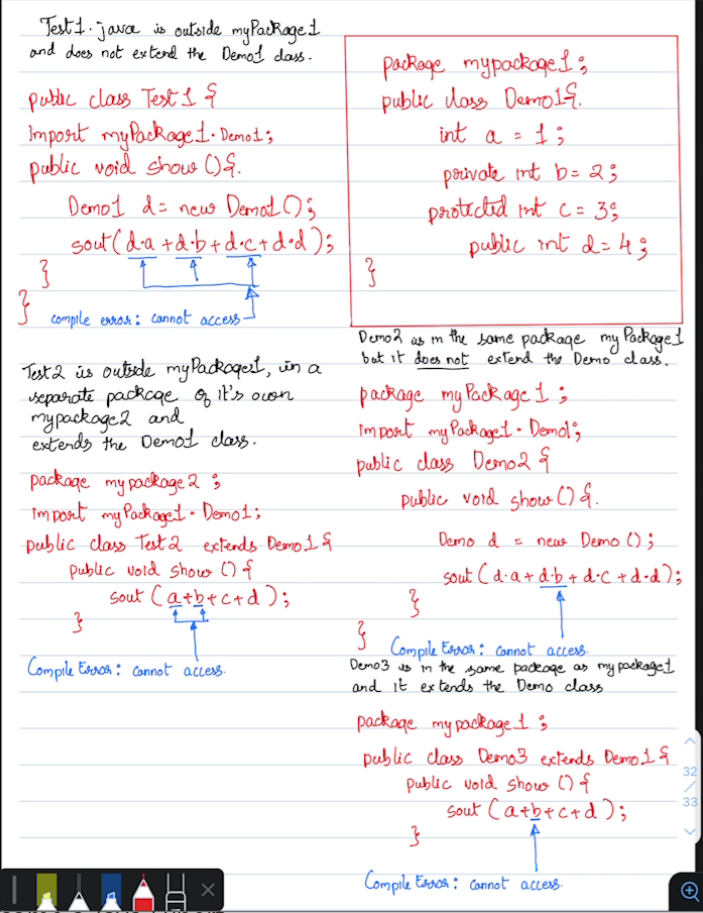 Test1.java is outside myPackage1
and does not extend the Demo1 class.
public class Test1 {
import myPackage1.Demo1;
public void show () {.
Demo1 d = new Demo1();
sout(d.a + d.b + d.c + d.d);
}
}
compile error: cannot access
package mypackage1;
public class Demo1{.
int a = 1;
private int b = 2;
protected int c = 3;
public int d = 4;
}
Test2 is outside myPackage1, in a
separate package of it's own
mypackage2 and
extends the Demo1 class.
package mypackage2;
import myPackage1.Demo1;
public class Test2 extends Demo1{
public void show () {
sout (a+b+c+d);
}
Compile Error: cannot access.
Demo2 is in the same package myPackage1
but it does not extend the Demo class.
package myPackage1;
import myPackage1.Demo1;
public class Demo2 {
public void show () {.
Demo d = new Demo ();
sout (d.a + d.b + d.c + d.d);
}
}
Compile Error: cannot access.
Demo3 is in the same package as mypackage1
and it extends the Demo class
package mypackage1;
public class Demo3 extends Demo1{
public void show () {
sout (a+b+c+d);
}
Compile Error: cannot access.
32
/
33